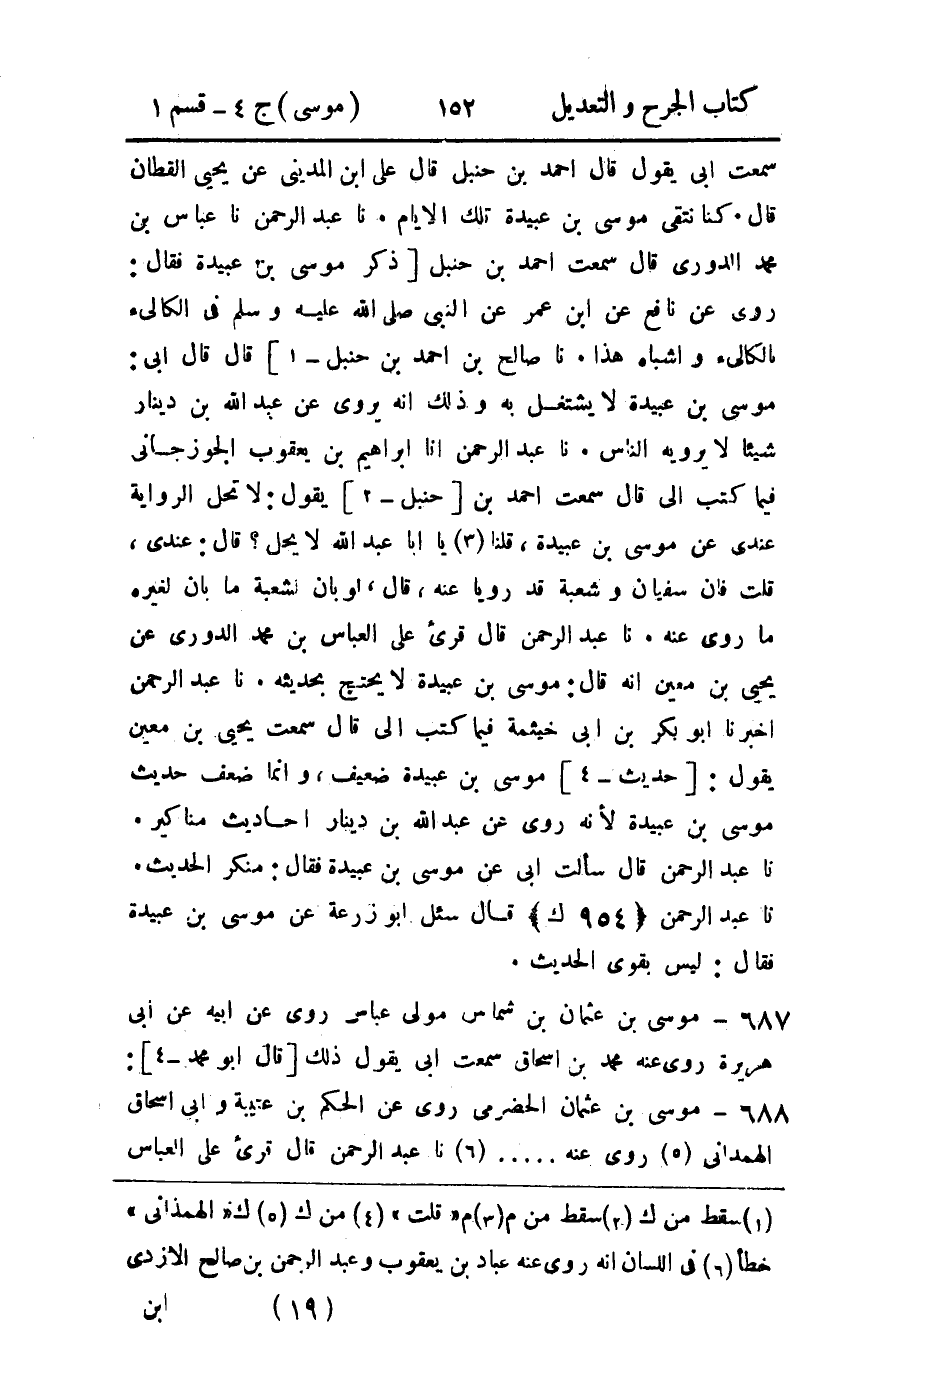 كتاب الجرح و التعديل ١٥٢ (موسى) ج ٤ - قسم ١
سمعت ابى يقول قال احمد بن حنبل قال على ابن المدينى عن يحيى القطان
قال٠ كنا نتقى موسى بن عبيدة تلك الايام ٠ نا عبد الرحمن نا عباس بن
محمد الدورى قال سمعت احمد بن حنبل [ ذكر موسى بن عبيدة فقال :
روى عن نافع عن ابن عمر عن النبى صلى الله عليه و سلم فى الكالىء
بالكالىء و اشباه هذا ٠ نا صالح بن احمد بن حنبل - ١ ] قال قال ابى :
موسى بن عبيدة لا يشتغل به و ذلك انه يروى عن عبد الله بن دينار
شيئا لا يرويه الناس ٠ نا عبد الرحمن انا ابراهيم بن يعقوب الجوزجانى
فيما كتب الى قال سمعت احمد بن [ حنبل - ٢ ] يقول : لا تحل الرواية
عندى عن موسى بن عبيدة ، قلنا (٣) يا ابا عبد الله لا يحل ؟ قال : عندى ،
قلت فان سفيان و شعبة قد رويا عنه ، قال ، او بان لشعبة ما بان لغيره
ما روى عنه ٠ نا عبد الرحمن قال قرئ على العباس بن محمد الدورى عن
يحيى بن معين انه قال : موسى بن عبيدة لا يحتج بحديثه ٠ نا عبد الرحمن
اخبرنا ابو بكر بن ابى خيثمة فيما كتب الى قال سمعت يحيى بن معين
يقول : [ حديث - ٤ ] موسى بن عبيدة ضعيف ، و انما ضعف حديث
موسى بن عبيدة لأنه روى عن عبد الله بن دينار احاديث مناكير ٠
نا عبد الرحمن قال سألت ابى عن موسى بن عبيدة فقال : منكر الحديث ٠
نا عبد الرحمن ﴿ ٩٥٤ ك ﴾ قال سئل ابو زرعة عن موسى بن عبيدة
فقال : ليس بقوى الحديث ٠
٦٨٧ - موسى بن عثمان بن شماس مولى عباس روى عن ابيه عن ابى
هريرة روى عنه محمد بن اسحاق سمعت ابى يقول ذلك [ قال ابو محمد - ٤ ] :
٦٨٨ - موسى بن عثمان الحضرمى روى عن الحكم بن عتيبة و ابى اسحاق
الهمدانى (٥) روى عنه ..... (٦) نا عبد الرحمن قال قرئ على العباس
(١) سقط من ك (٢) سقط من م (٣) م « قلت » (٤) من ك (٥) ك « الهمذانى »
خطأ (٦) فى اللسان انه روى عنه عباد بن يعقوب و عبد الرحمن بن صالح الازدى
(١٩) ابن